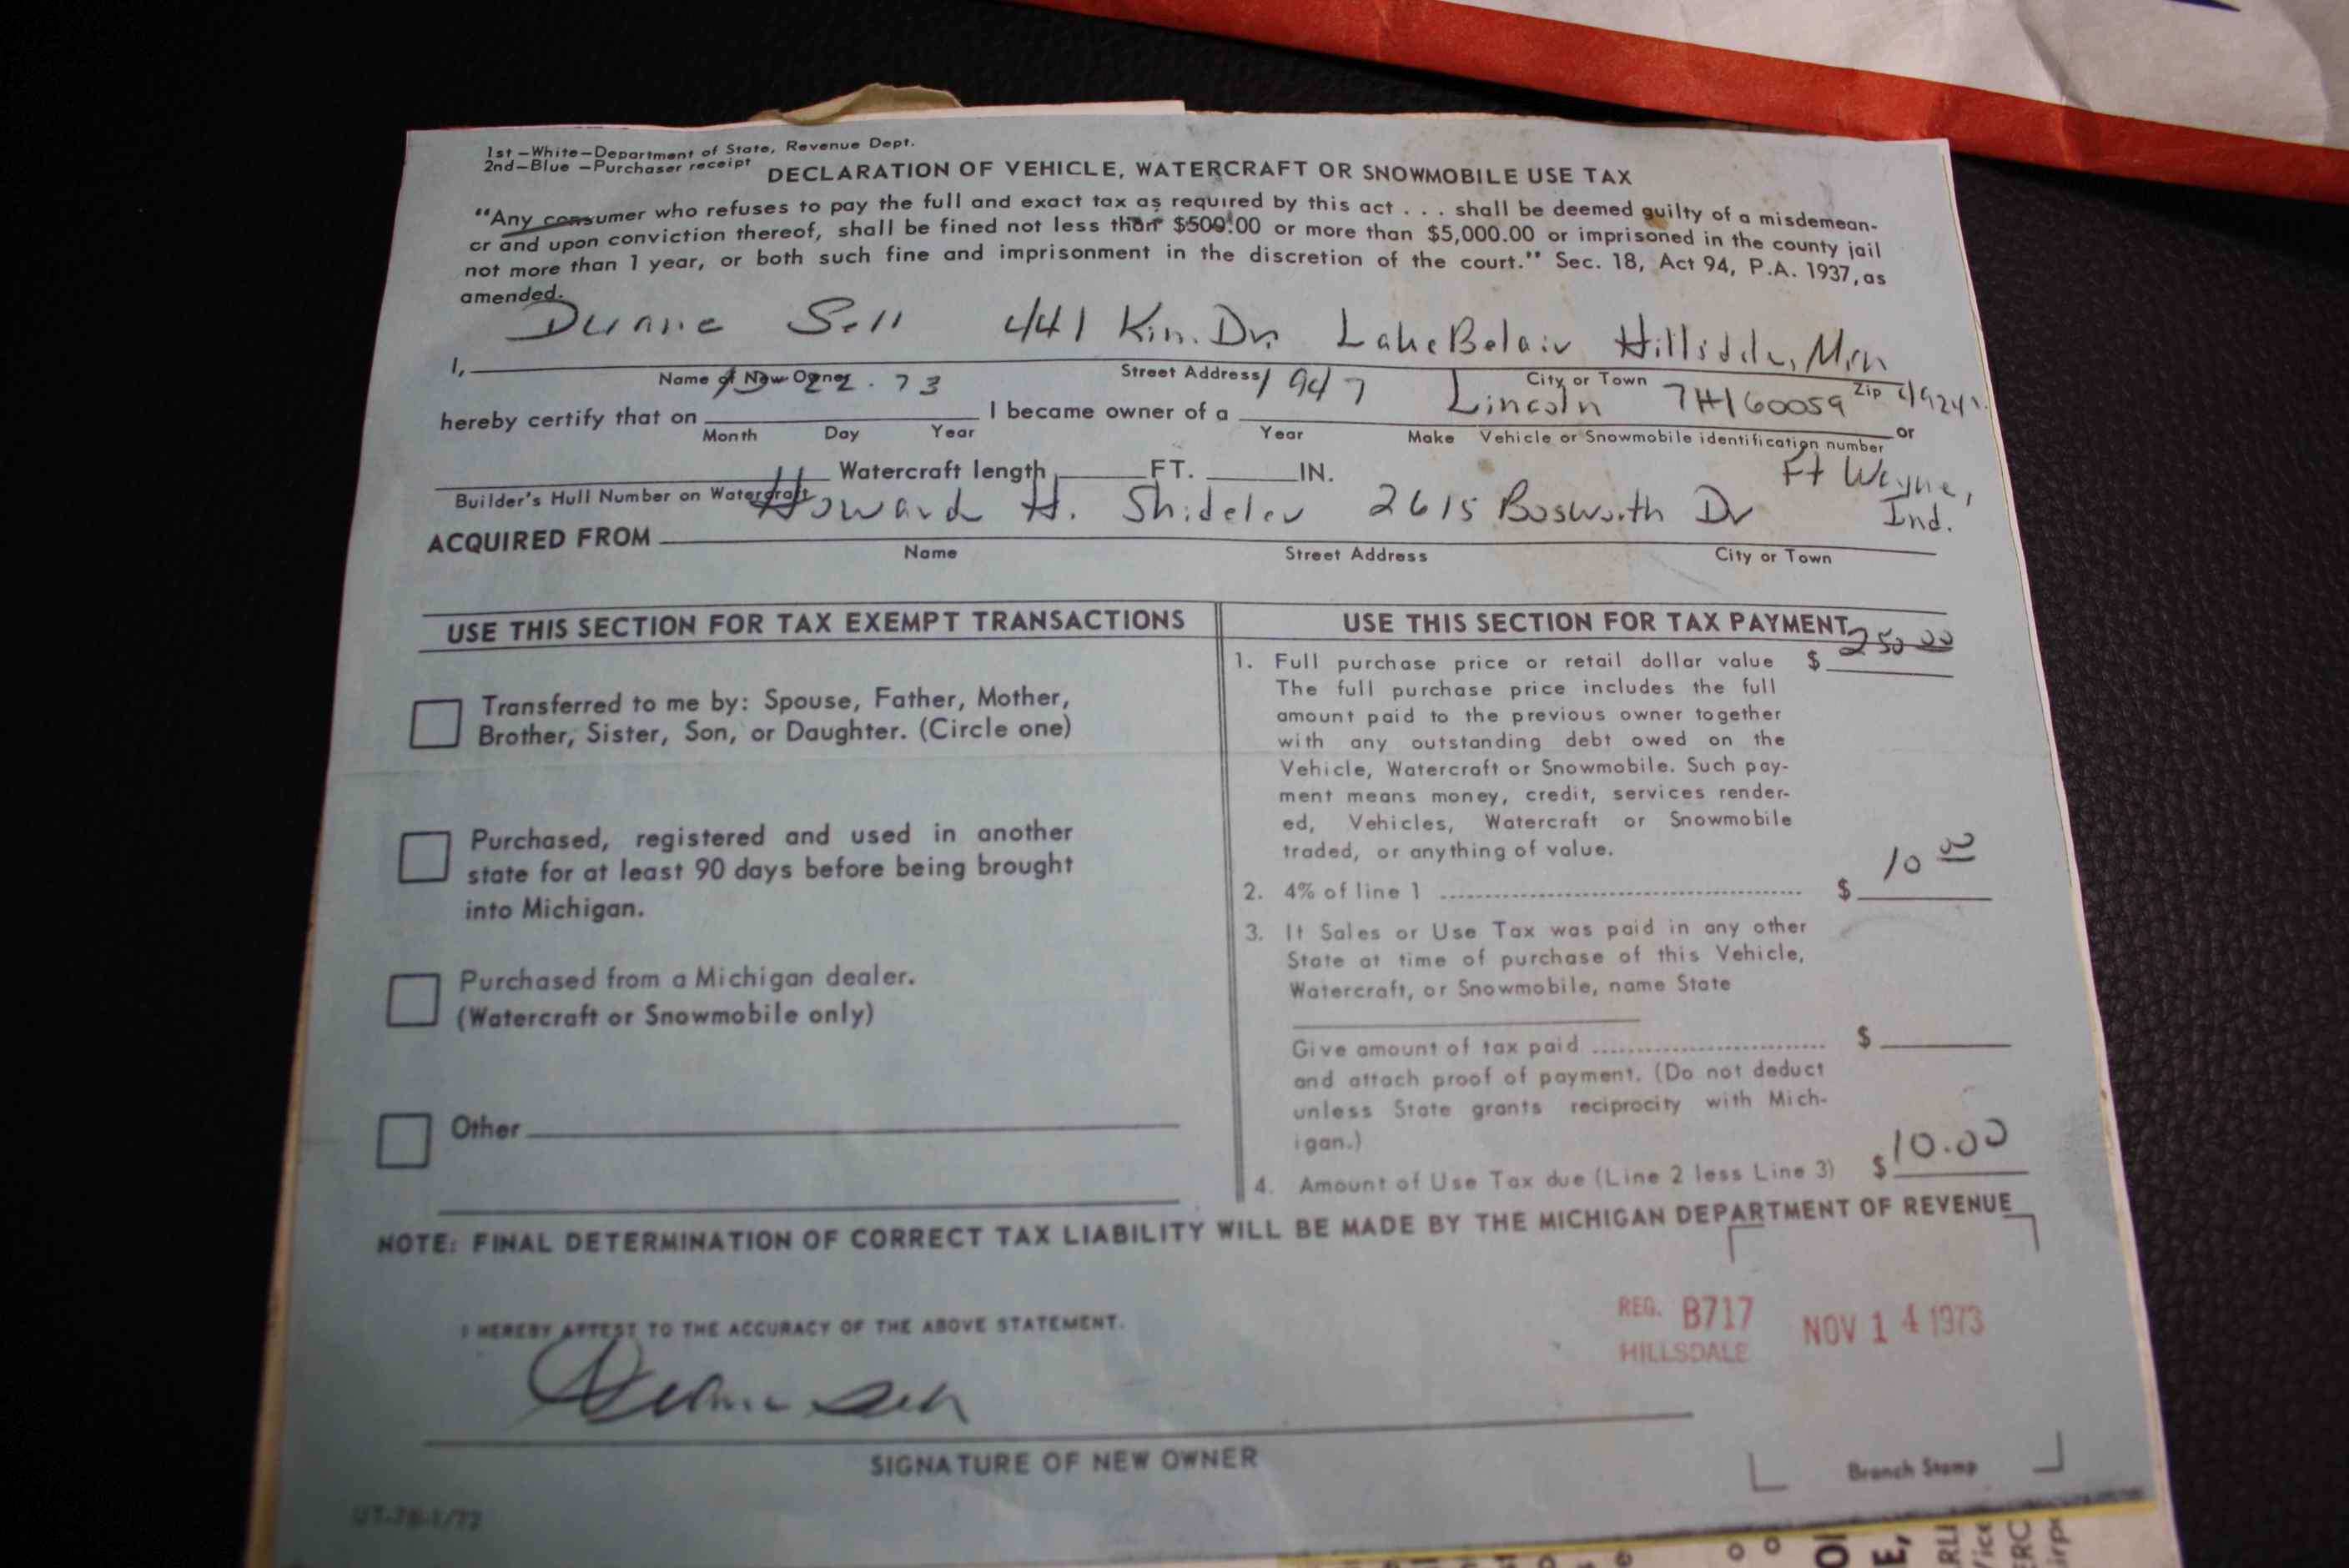 1st—White—Department of State, Revenue Dept.
2nd—Blue —Purchaser receipt
DECLARATION OF VEHICLE, WATERCRAFT OR SNOWMOBILE USE TAX
"Any consumer who refuses to pay the full and exact tax as required by this act . . . shall be deemed guilty of a misdemean-
or and upon conviction thereof, shall be fined not less than $500.00 or more than $5,000.00 or imprisoned in the county jail
not more than 1 year, or both such fine and imprisonment in the discretion of the court." Sec. 18, Act 94, P.A. 1937, as
amended.
I, Duane Sell 441 Kin. Dr. Lake Belair Hillsdale,
Name of New Owner Street Address City or Town Zip
hereby certify that on 22.73 I became owner of a 1947 Lincoln 7H160059 or
Month Day Year Year Make Vehicle or Snowmobile identification number
Watercraft length FT. IN.
Builder's Hull Number on Watercraft
ACQUIRED FROM Howard H. Shideler 2615 Bosworth Dr Ft Wayne, Ind.
Name Street Address City or Town
USE THIS SECTION FOR TAX EXEMPT TRANSACTIONS
Transferred to me by: Spouse, Father, Mother,
Brother, Sister, Son, or Daughter. (Circle one)
Purchased, registered and used in another
state for at least 90 days before being brought
into Michigan.
Purchased from a Michigan dealer.
(Watercraft or Snowmobile only)
Other
USE THIS SECTION FOR TAX PAYMENT
1. Full purchase price or retail dollar value $ 250.00
The full purchase price includes the full
amount paid to the previous owner together
with any outstanding debt owed on the
Vehicle, Watercraft or Snowmobile. Such pay-
ment means money, credit, services render-
ed, Vehicles, Watercraft or Snowmobile
traded, or anything of value.
2. 4% of line 1 $ 10 00
3. If Sales or Use Tax was paid in any other
State at time of purchase of this Vehicle,
Watercraft, or Snowmobile, name State
Give amount of tax paid $
and attach proof of payment. (Do not deduct
unless State grants reciprocity with Mich-
igan.)
4. Amount of Use Tax due (Line 2 less Line 3) $ 10.00
NOTE: FINAL DETERMINATION OF CORRECT TAX LIABILITY WILL BE MADE BY THE MICHIGAN DEPARTMENT OF REVENUE
I HEREBY ATTEST TO THE ACCURACY OF THE ABOVE STATEMENT.
REG. B717 NOV 14 1973
HILLSDALE
Duane Sell
SIGNATURE OF NEW OWNER
Branch Stamp
UT-78-1/72